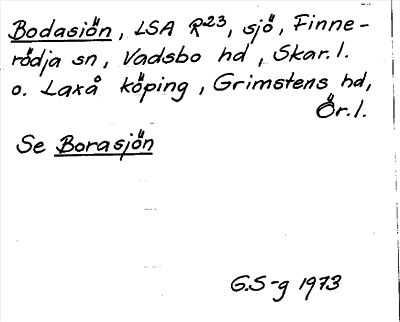 Bodasjön, LSA R²³, sjö, Finne-
rödja sn, Vadsbo hd, Skar.l.
o. Laxå köping, Grimstens hd,
Ör.l.
Se Borasjön
G.S-g 1973